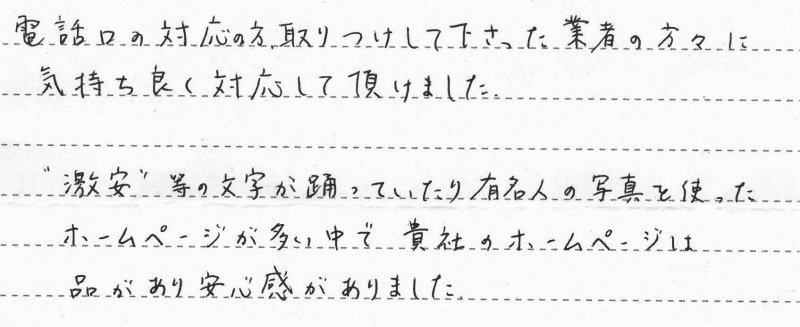 電話口の対応の方、取りつけして下さった業者の方々に
気持ち良く対応して頂けました。
"激安"等の文字が踊っていたり有名人の写真を使った
ホームページが多い中で貴社のホームページは
品があり安心感がありました。